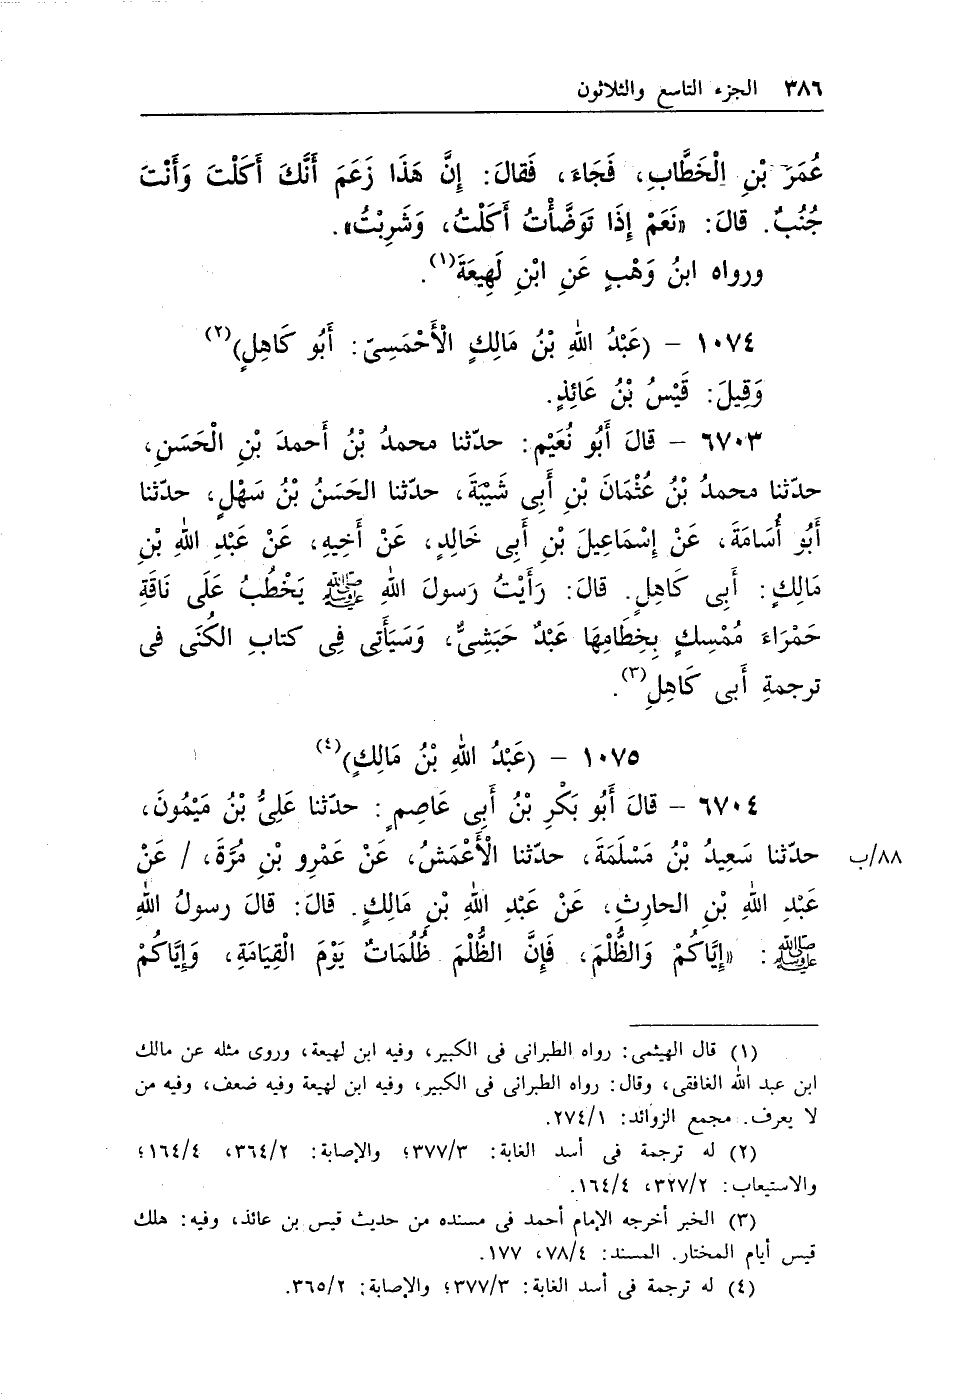 ٣٨٦ الجزء التاسع والثلاثون
عُمَرَ بْنِ الْخَطَّابِ، فَجَاءَ، فَقالَ: إِنَّ هَذَا زَعَمَ أَنَّكَ أَكَلْتَ وَأَنْتَ
جُنُبٌ. قالَ: «نَعَمْ إِذَا تَوَضَّأْتُ أَكَلْتُ، وَشَرِبْتُ».
ورواه ابنُ وَهْبٍ عَنِ ابْنِ لَهِيعَةَ(١).
١٠٧٤ – (عَبْدُ اللهِ بْنُ مَالِكٍ الْأَحْمَسِىّ: أَبُو كَاهِلٍ)(٢)
وَقِيلَ: قَيْسُ بْنُ عَائِذٍ.
٦٧٠٣ – قالَ أَبُو نُعَيْم: حدّثنا محمدُ بْنُ أحمدَ بْنِ الْحَسَنِ،
حدّثنا محمدُ بْنُ عُثْمَانَ بْنِ أَبِى شَيْبَةَ، حدّثنا الحَسَنُ بْنُ سَهْلٍ، حدّثنا
أَبُو أُسَامَةَ، عَنْ إِسْمَاعِيلَ بْنِ أَبِى خَالِدٍ، عَنْ أَخِيهِ، عَنْ عَبْدِ اللهِ بْنِ
مَالِكٍ: أَبِى كَاهِلٍ. قالَ: رَأَيْتُ رَسولَ اللهِ ﷺ يَخْطُبُ عَلَى نَاقَةِ
حَمْرَاءَ مُمْسِكٍ بِخِطَامِهَا عَبْدٌ حَبَشِىٌّ، وَسَيَأْتِى فِى كتاب الكُنَى فى
ترجمةِ أَبى كَاهِلِ(٣).
١٠٧٥ – (عَبْدُ اللهِ بْنُ مَالِكٍ)(٤)
٦٧٠٤ – قالَ أَبُو بَكْرِ بْنُ أَبِى عَاصِمٍ: حدّثنا عَلِىُّ بْنُ مَيْمُونَ،
٨٨/ب حدّثنا سَعِيدُ بْنُ مَسْلَمَةَ، حدّثنا الْأَعْمَشُ، عَنْ عَمْرِو بْنِ مُرَّةَ، / عَنْ
عَبْدِ اللهِ بْنِ الحارِثِ، عَنْ عَبْدِ اللهِ بْنِ مَالِكٍ. قالَ: قالَ رسولُ اللهِ
ﷺ: «إِيَّاكُمْ وَالظُّلْمَ، فَإِنَّ الظُّلْمَ ظُلُمَاتٌ يَوْمَ الْقِيَامَةِ، وَإِيَّاكُمْ
(١) قال الهيثمى: رواه الطبرانى فى الكبير، وفيه ابن لهيعة، وروى مثله عن مالك
ابن عبد الله الغافقى، وقال: رواه الطبرانى فى الكبير، وفيه ابن لهيعة وفيه ضعف، وفيه من
لا يعرف. مجمع الزوائد: ٢٧٤/١.
(٢) له ترجمة فى أسد الغابة: ٣٧٧/٣؛ والإصابة: ٣٦٤/٢، ١٦٤/٤؛
والاستيعاب: ٣٢٧/٢، ١٦٤/٤.
(٣) الخبر أخرجه الإمام أحمد فى مسنده من حديث قيس بن عائذ، وفيه: هلك
قيس أيام المختار. المسند: ٧٨/٤، ١٧٧.
(٤) له ترجمة فى أسد الغابة: ٣٧٧/٣؛ والإصابة: ٣٦٥/٢.